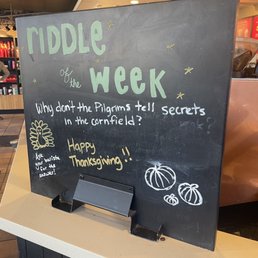 riDDLe
of the WeeK
Why don't the Pilgrims tell secrets
in the cornfield?
Happy
Thanksgiving!!
Ask
your barista
for the
answer!